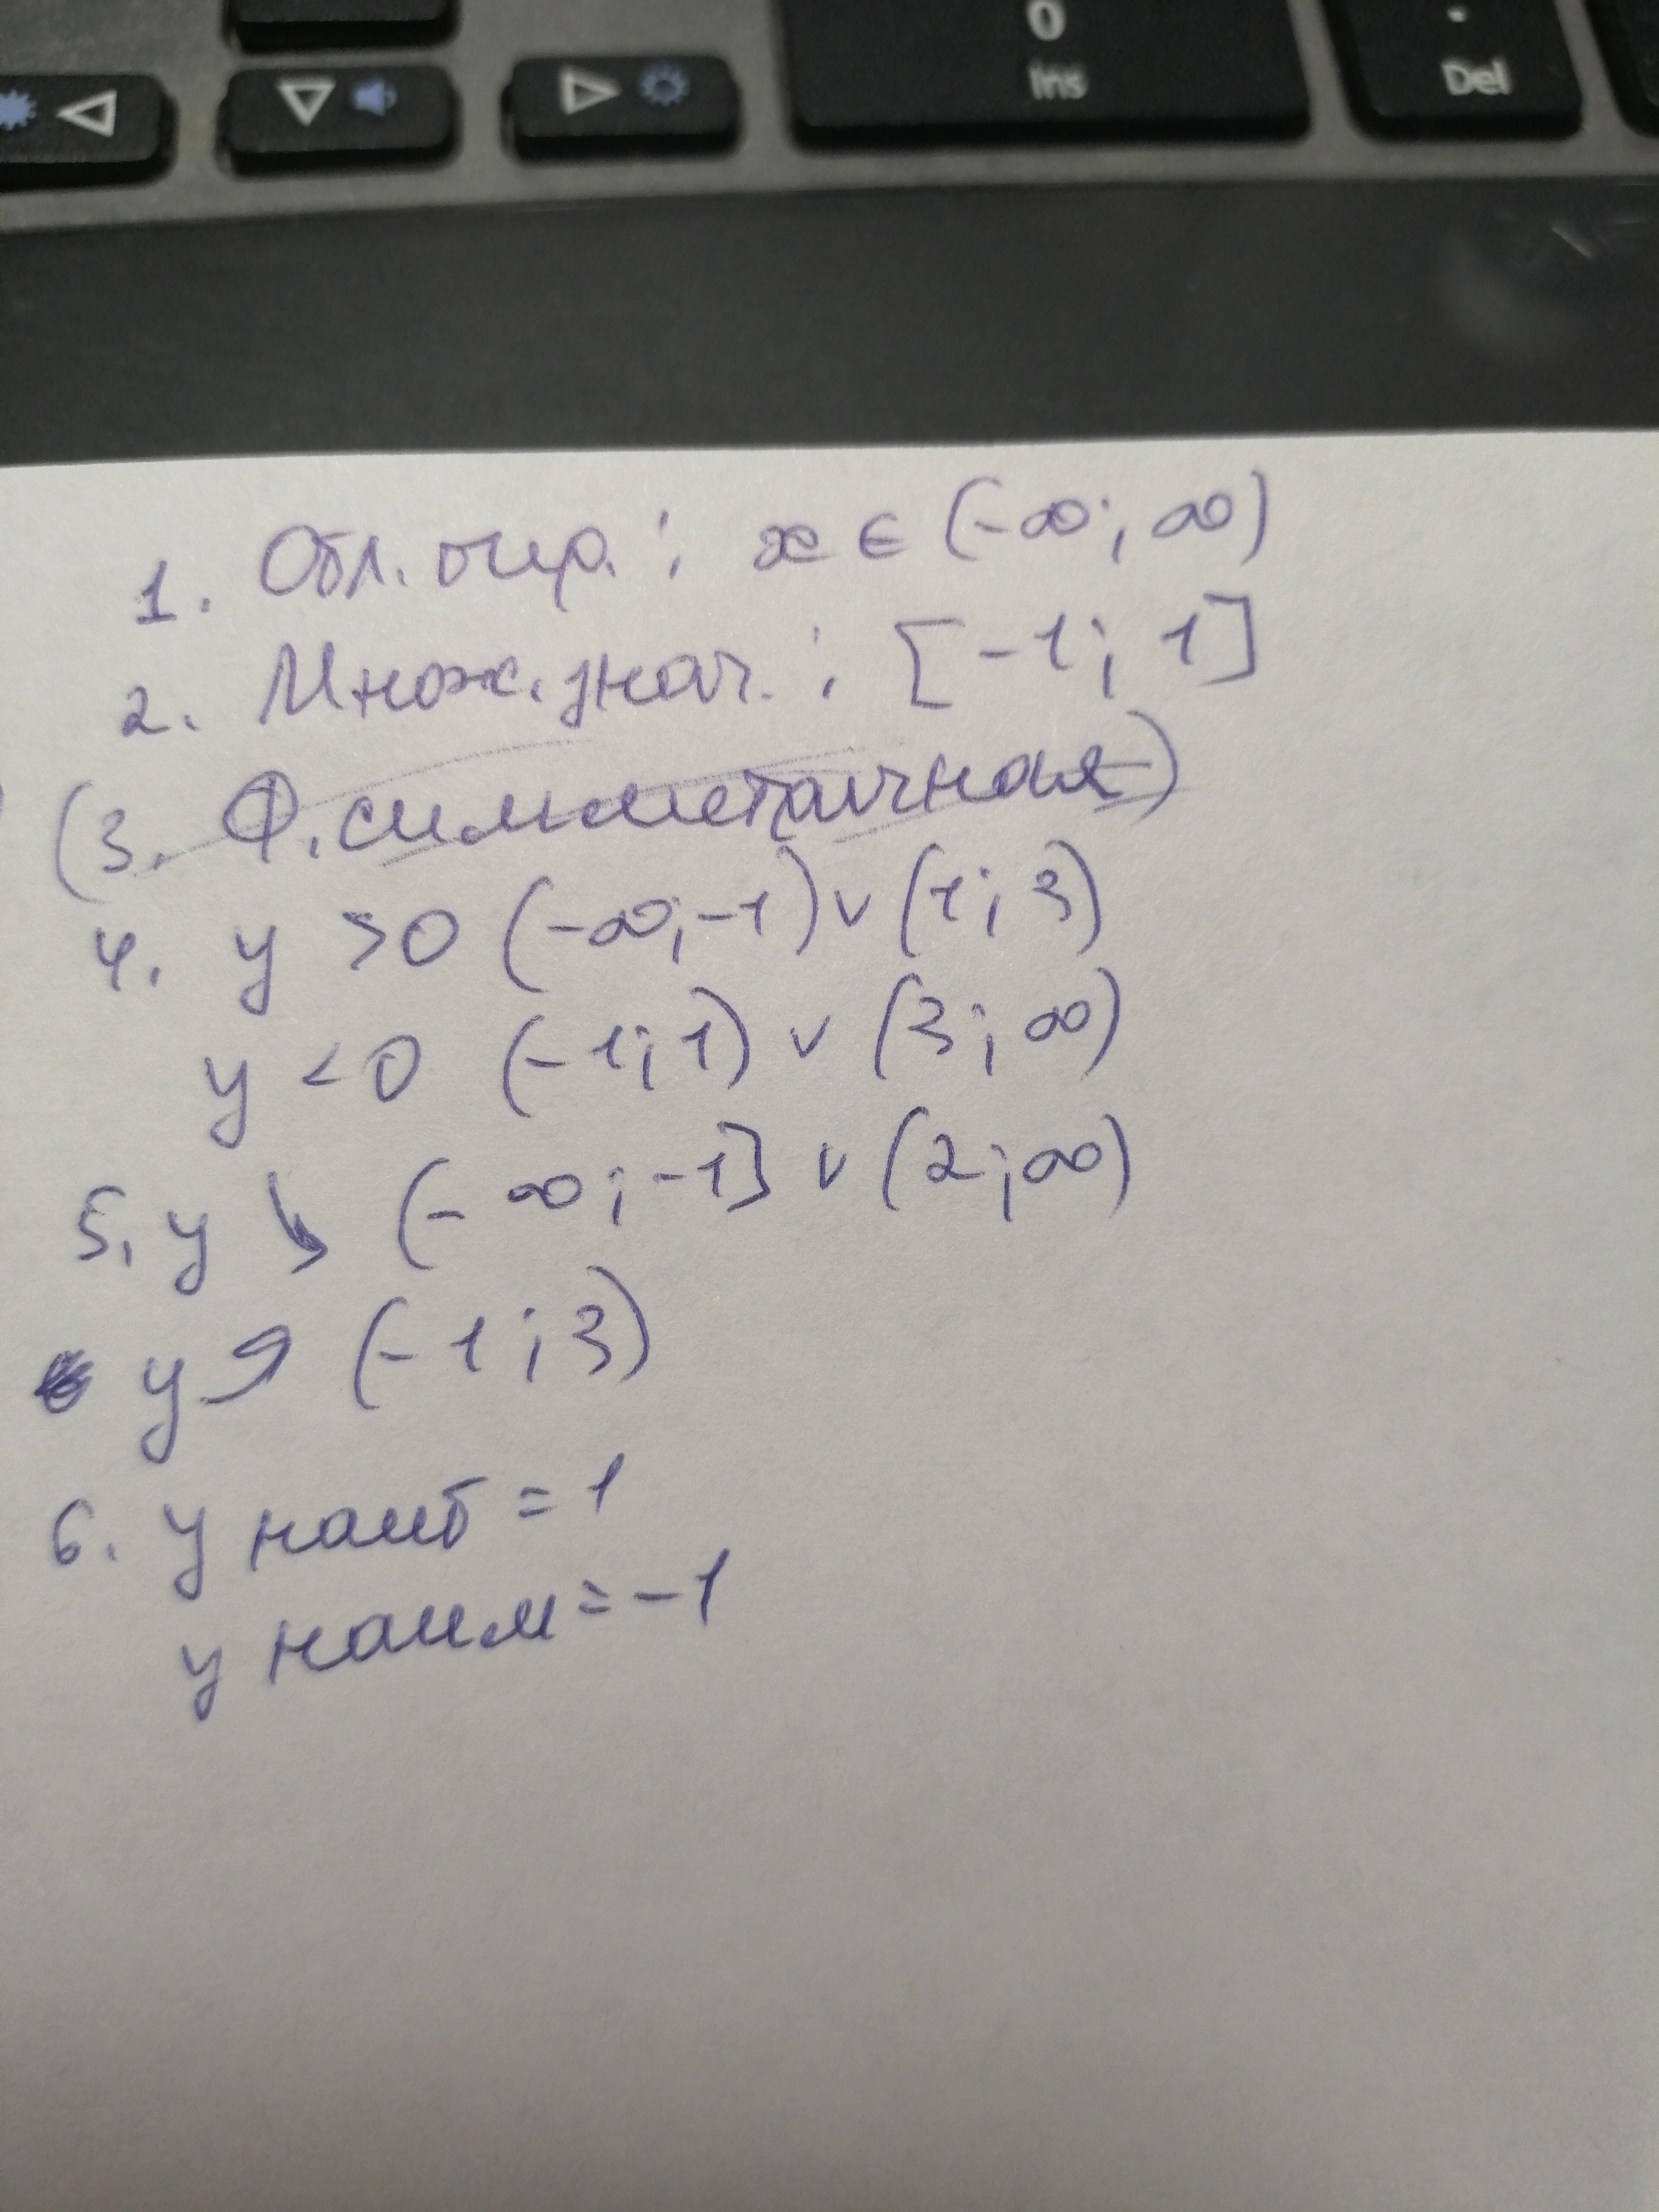 0
Ins
Del
1. Обл. опр. : x ∈ (-∞; ∞)
2. Множ. знач. : [-1; 1]
(3. Ф. симметричная)
4. y >0 (-∞; -1) ∨ (1; 3)
y < 0 (-1; 1) ∨ (3; ∞)
5. y ↘ (-∞; -1] ∨ (2; ∞)
y ↗ (-1; 3)
6. y наиб = 1
y наим = -1